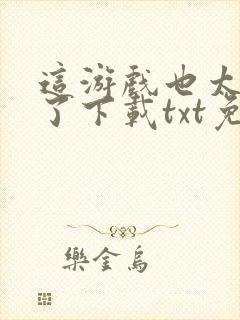 這游戲也太
了下載txt免
樂金烏